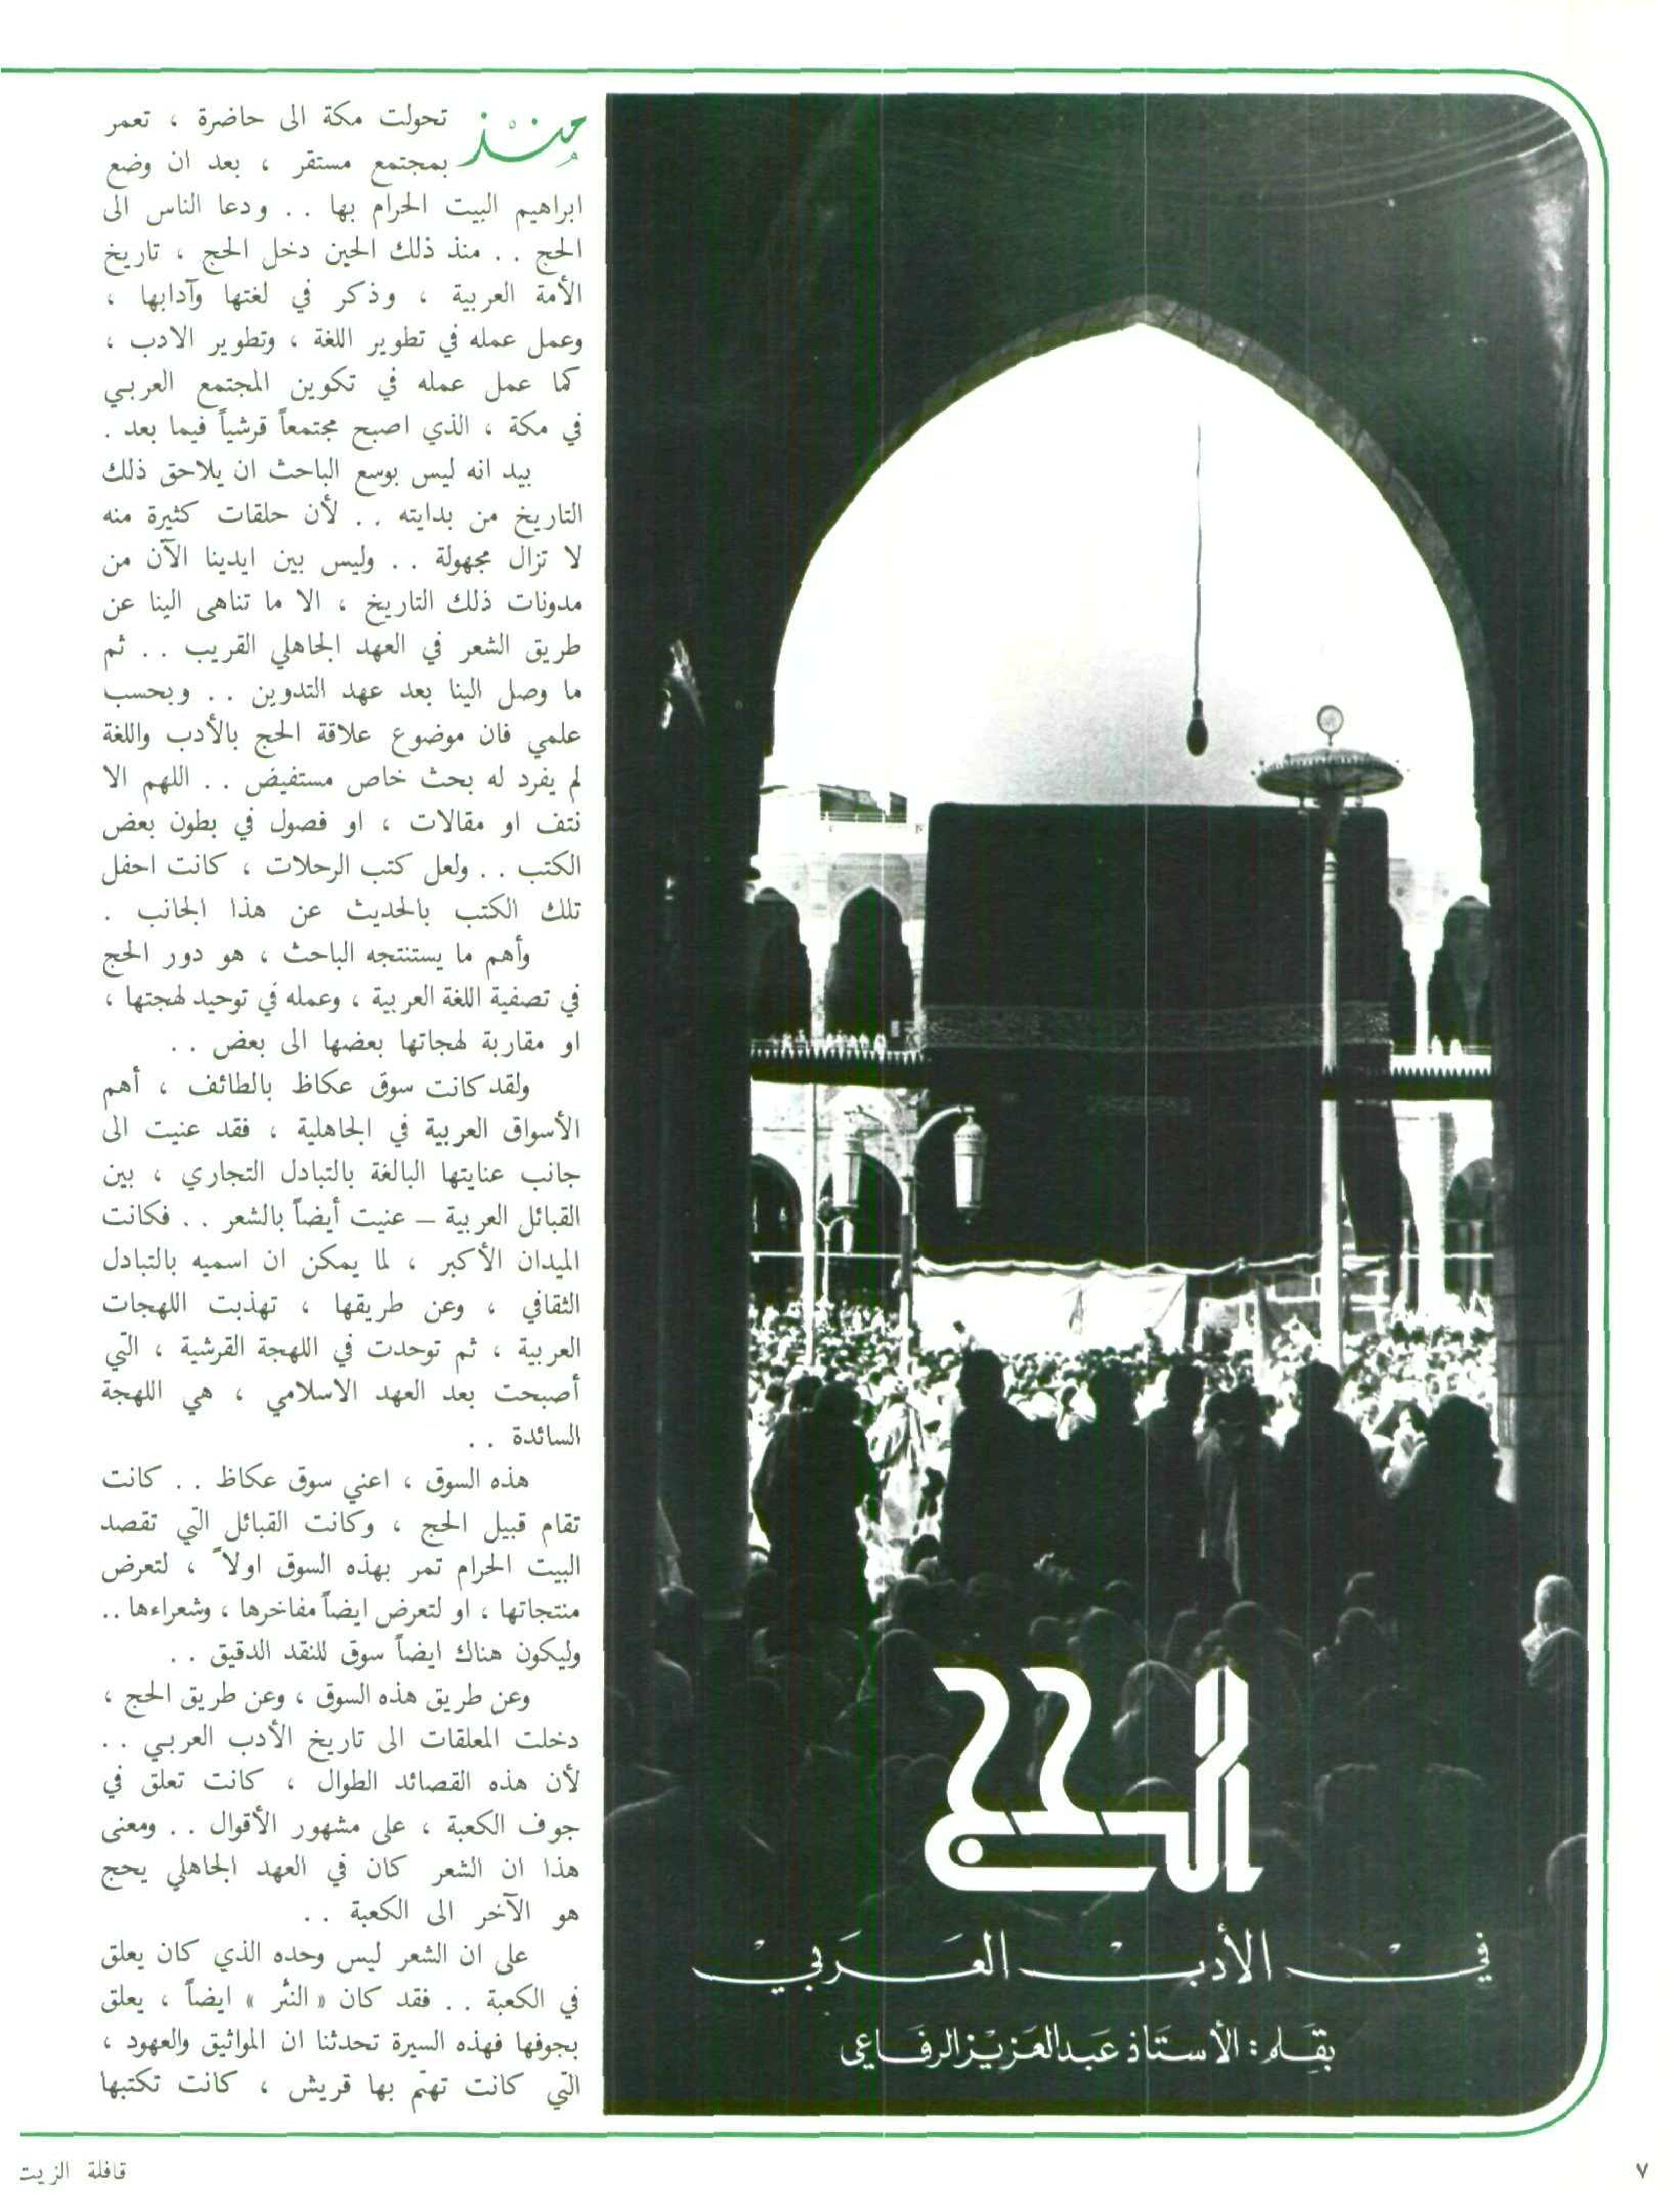 الحج
في الأدب العربي
بقلم : الأستاذ عبد العزيز الرفاعي
منذ تحولت مكة الى حاضرة ، تعمر
بمجتمع مستقر ، بعد ان وضع
ابراهيم البيت الحرام بها . . ودعا الناس الى
الحج . . منذ ذلك الحين دخل الحج ، تاريخ
الأمة العربية ، وذكر في لغتها وآدابها ،
وعمل عمله في تطوير اللغة ، وتطوير الادب ،
كما عمل عمله في تكوين المجتمع العربي
في مكة ، الذي اصبح مجتمعاً قرشياً فيما بعد .
بيد انه ليس بوسع الباحث ان يلاحق ذلك
التاريخ من بدايته . . لأن حلقات كثيرة منه
لا تزال مجهولة . . وليس بين ايدينا الآن من
مدونات ذلك التاريخ ، الا ما تناهى الينا عن
طريق الشعر في العهد الجاهلي القريب . . ثم
ما وصل الينا بعد عهد التدوين . . وبحسب
علمي فان موضوع علاقة الحج بالأدب واللغة
لم يفرد له بحث خاص مستفيض . . اللهم الا
نتف او مقالات ، او فصول في بطون بعض
الكتب . . ولعل كتب الرحلات ، كانت احفل
تلك الكتب بالحديث عن هذا الجانب .
وأهم ما يستنتجه الباحث ، هو دور الحج
في تصفية اللغة العربية ، وعمله في توحيد لهجتها ،
او مقاربة لهجاتها بعضها الى بعض . .
ولقد كانت سوق عكاظ بالطائف ، أهم
الأسواق العربية في الجاهلية ، فقد عنيت الى
جانب عنايتها البالغة بالتبادل التجاري ، بين
القبائل العربية – عنيت أيضاً بالشعر . . فكانت
الميدان الأكبر ، لما يمكن ان اسميه بالتبادل
الثقافي ، وعن طريقها ، تهذبت اللهجات
العربية ، ثم توحدت في اللهجة القرشية ، التي
أصبحت بعد العهد الاسلامي ، هي اللهجة
السائدة . .
هذه السوق ، اعني سوق عكاظ . . كانت
تقام قبيل الحج ، وكانت القبائل التي تقصد
البيت الحرام تمر بهذه السوق اولاً ، لتعرض
منتجاتها ، او لتعرض ايضاً مفاخرها ، وشعراءها . .
وليكون هناك ايضاً سوق للنقد الدقيق . .
وعن طريق هذه السوق ، وعن طريق الحج ،
دخلت المعلقات الى تاريخ الأدب العربي . .
لأن هذه القصائد الطوال ، كانت تعلق في
جوف الكعبة ، على مشهور الأقوال . . ومعنى
هذا ان الشعر كان في العهد الجاهلي يحج
هو الآخر الى الكعبة . .
على ان الشعر ليس وحده الذي كان يعلق
في الكعبة . . فقد كان « النثر » ايضاً ، يعلق
بجوفها فهذه السيرة تحدثنا ان المواثيق والعهود ،
التي كانت تهتم بها قريش ، كانت تكتبها
٧
قافلة الزيت